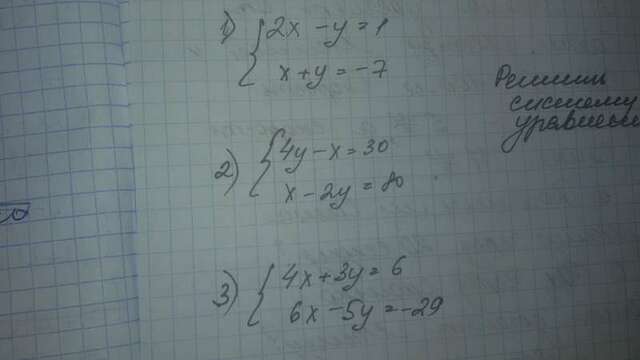 1) { 2x - y = 1
x + y = -7
Решить
систему
уравнени
2) { 4y - x = 30
x - 2y = 80
3) { 4x + 3y = 6
6x - 5y = -29